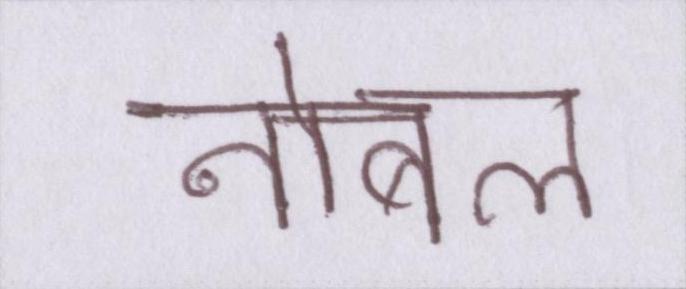 नोबल